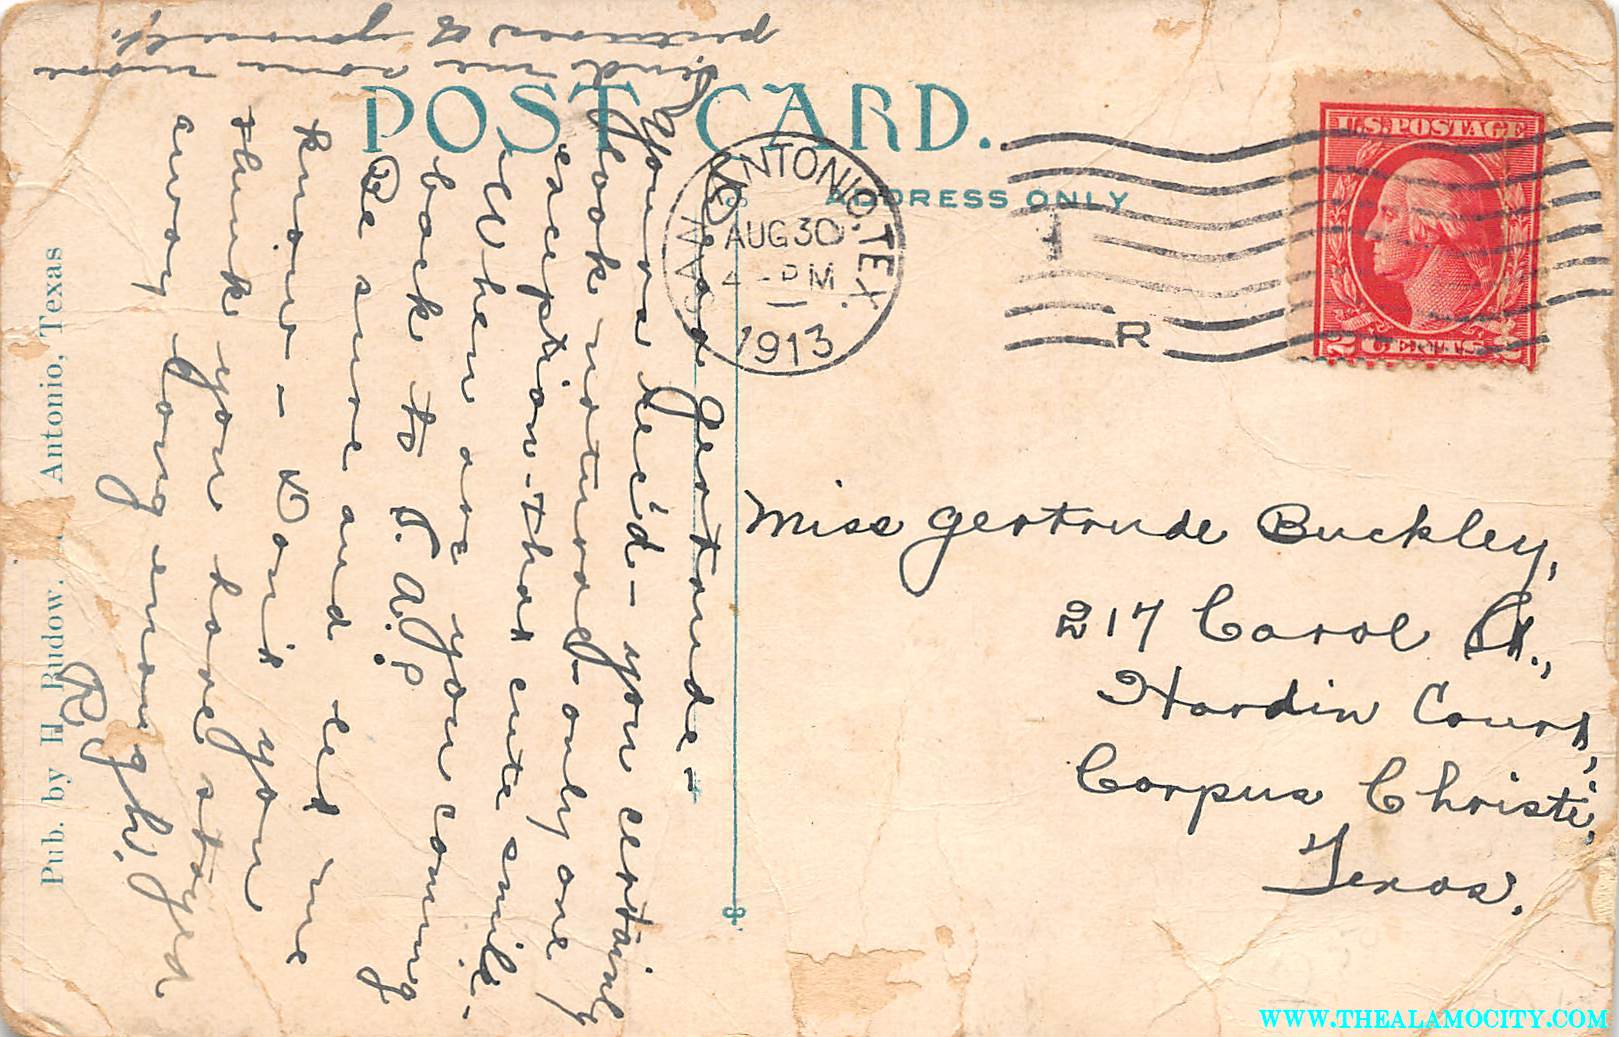 POST CARD.
ADDRESS ONLY
SAN ANTONIO, TEX.
AUG 30
4 - PM
1913
R
U.S. POSTAGE
2 CENTS 2
Miss Gertrude Buckley,
217 Carol St.,
Hardin Court,
Corpus Christi,
Texas.
Dear Gertrude -
Yours rec'd - you certainly
look natural - only one
exception - that cute smile.
When are you coming
back to S.A.?
Be sure and let me
know - Don't you
think you have stayed
away long enough?
R.
Send me some more
pictures of yourself.
Pub. by H. Budow. Antonio, Texas
WWW.THEALAMOCITY.COM